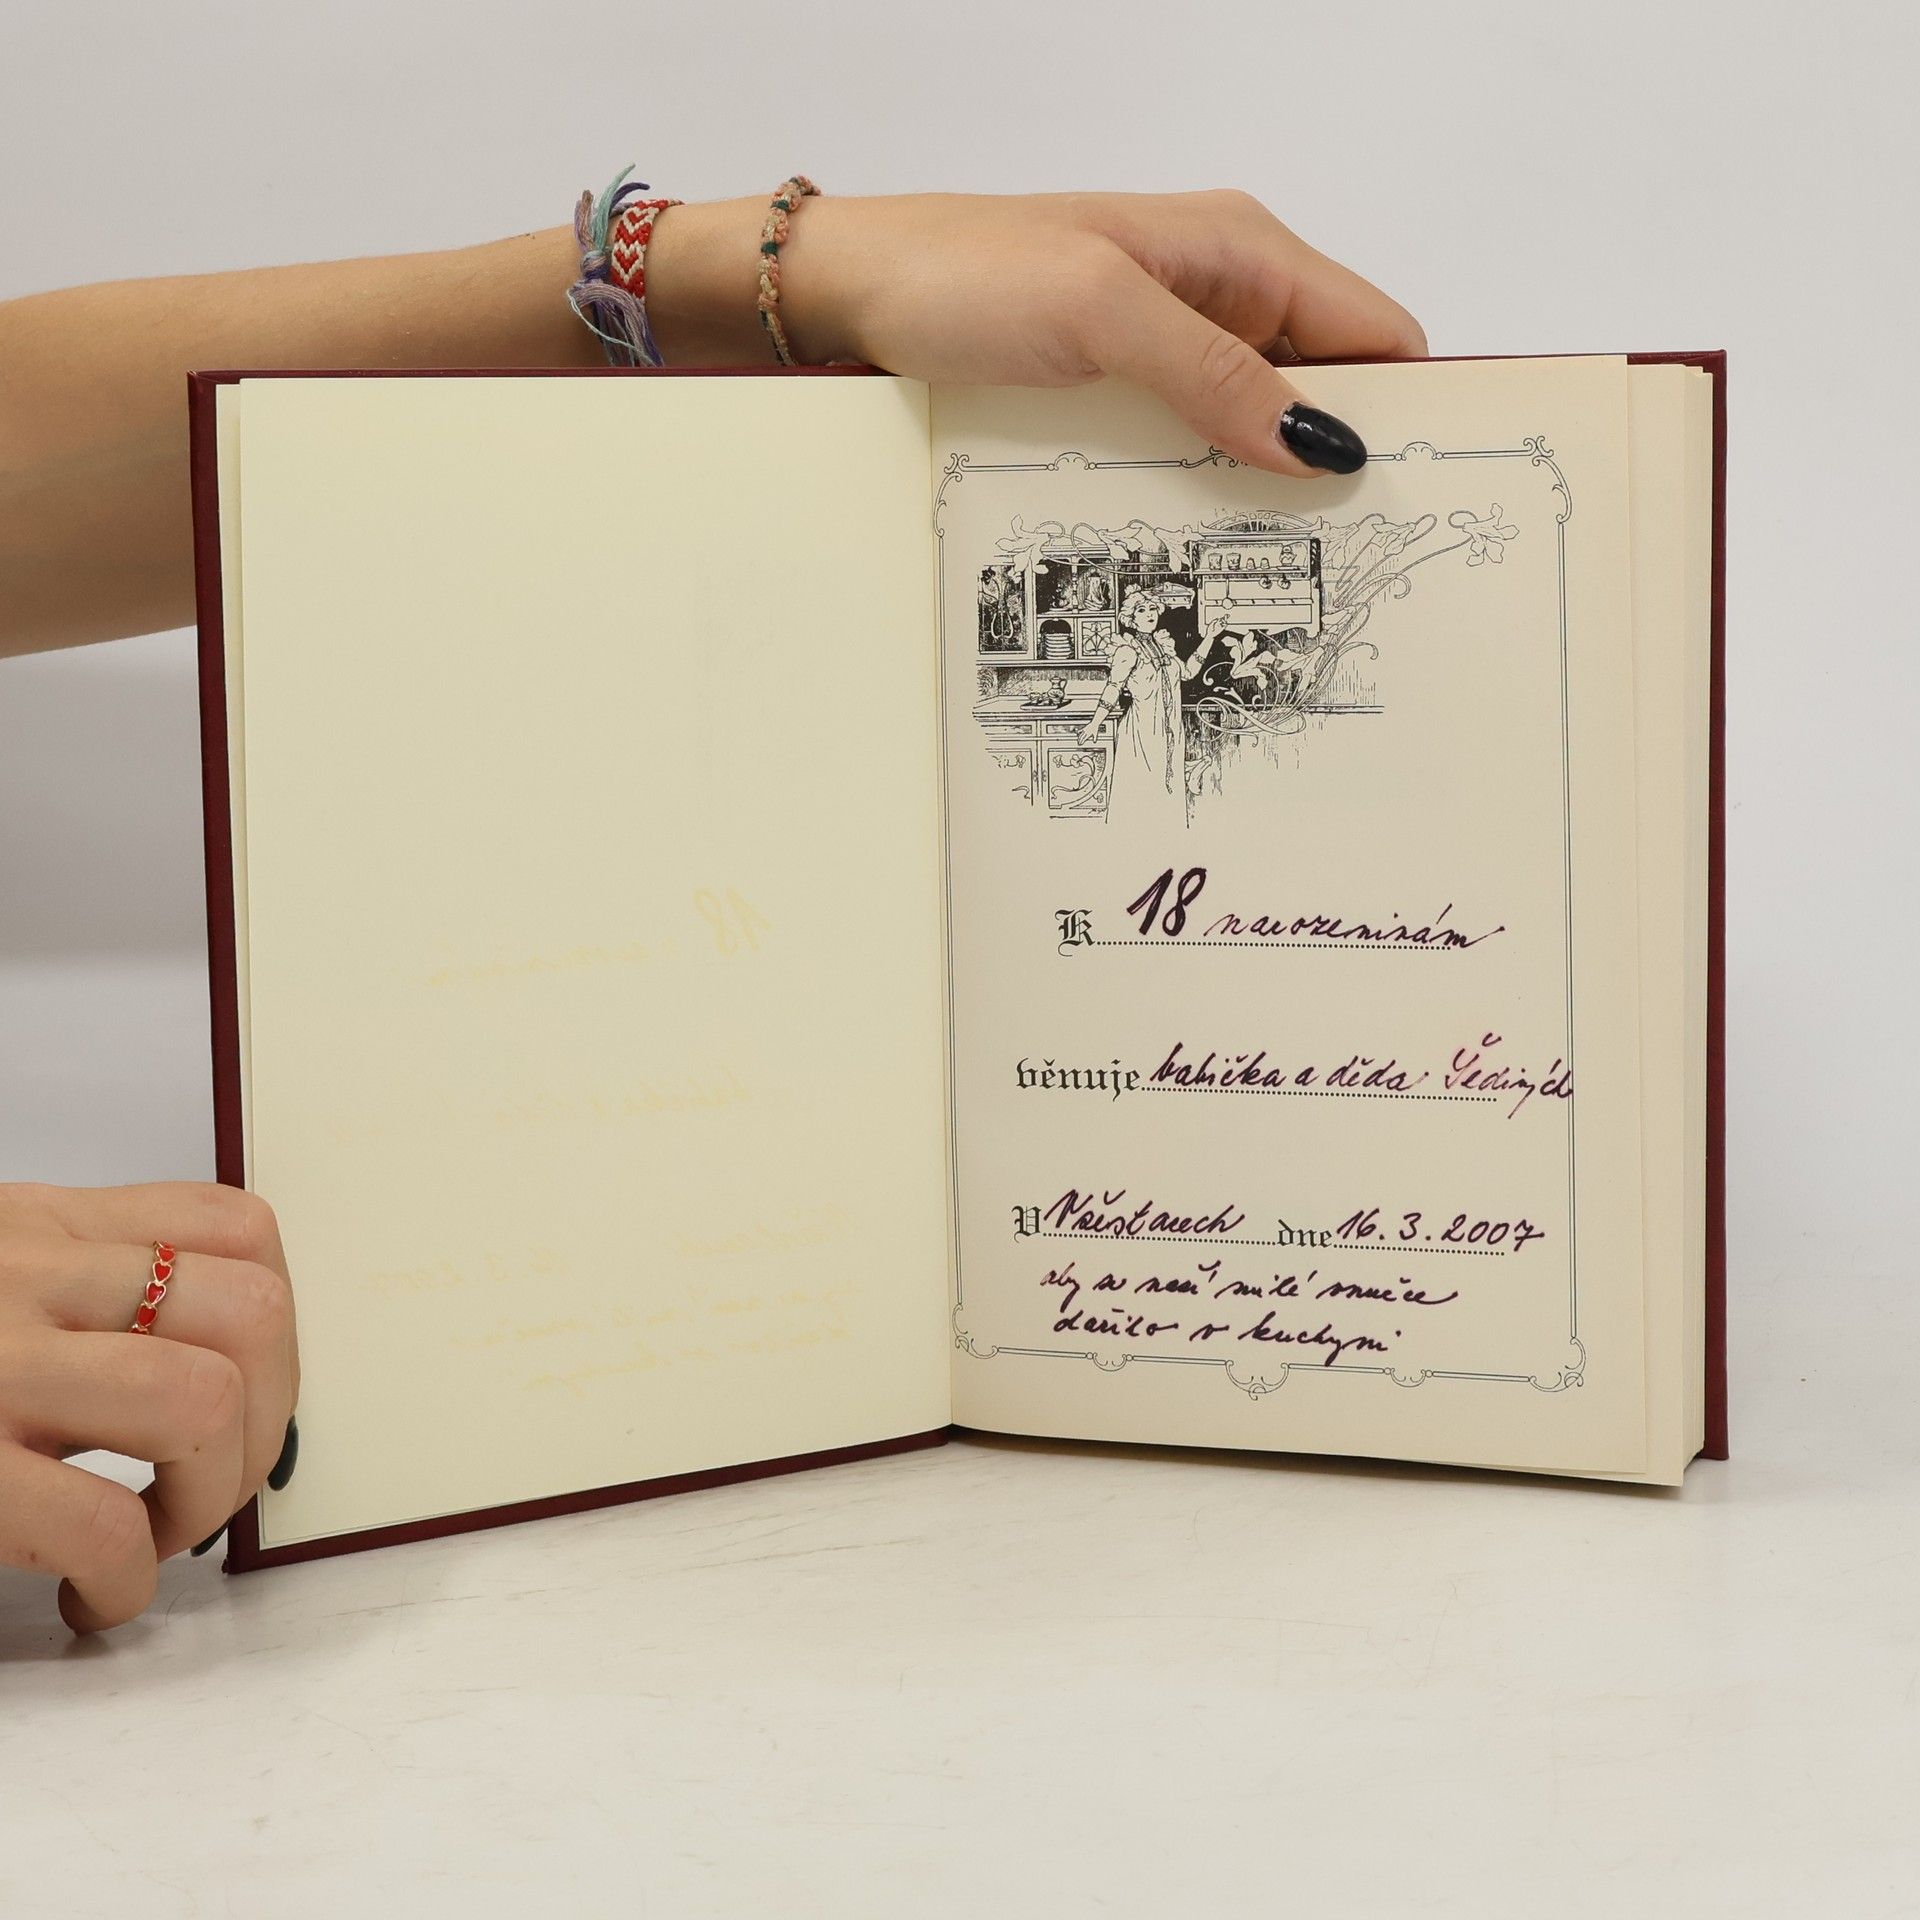 K 18 narozeninám
věnuje babička a děda Šediných
V Všestarech dne 16.3.2007
aby se naší milé vnučce
dařilo v kuchyni